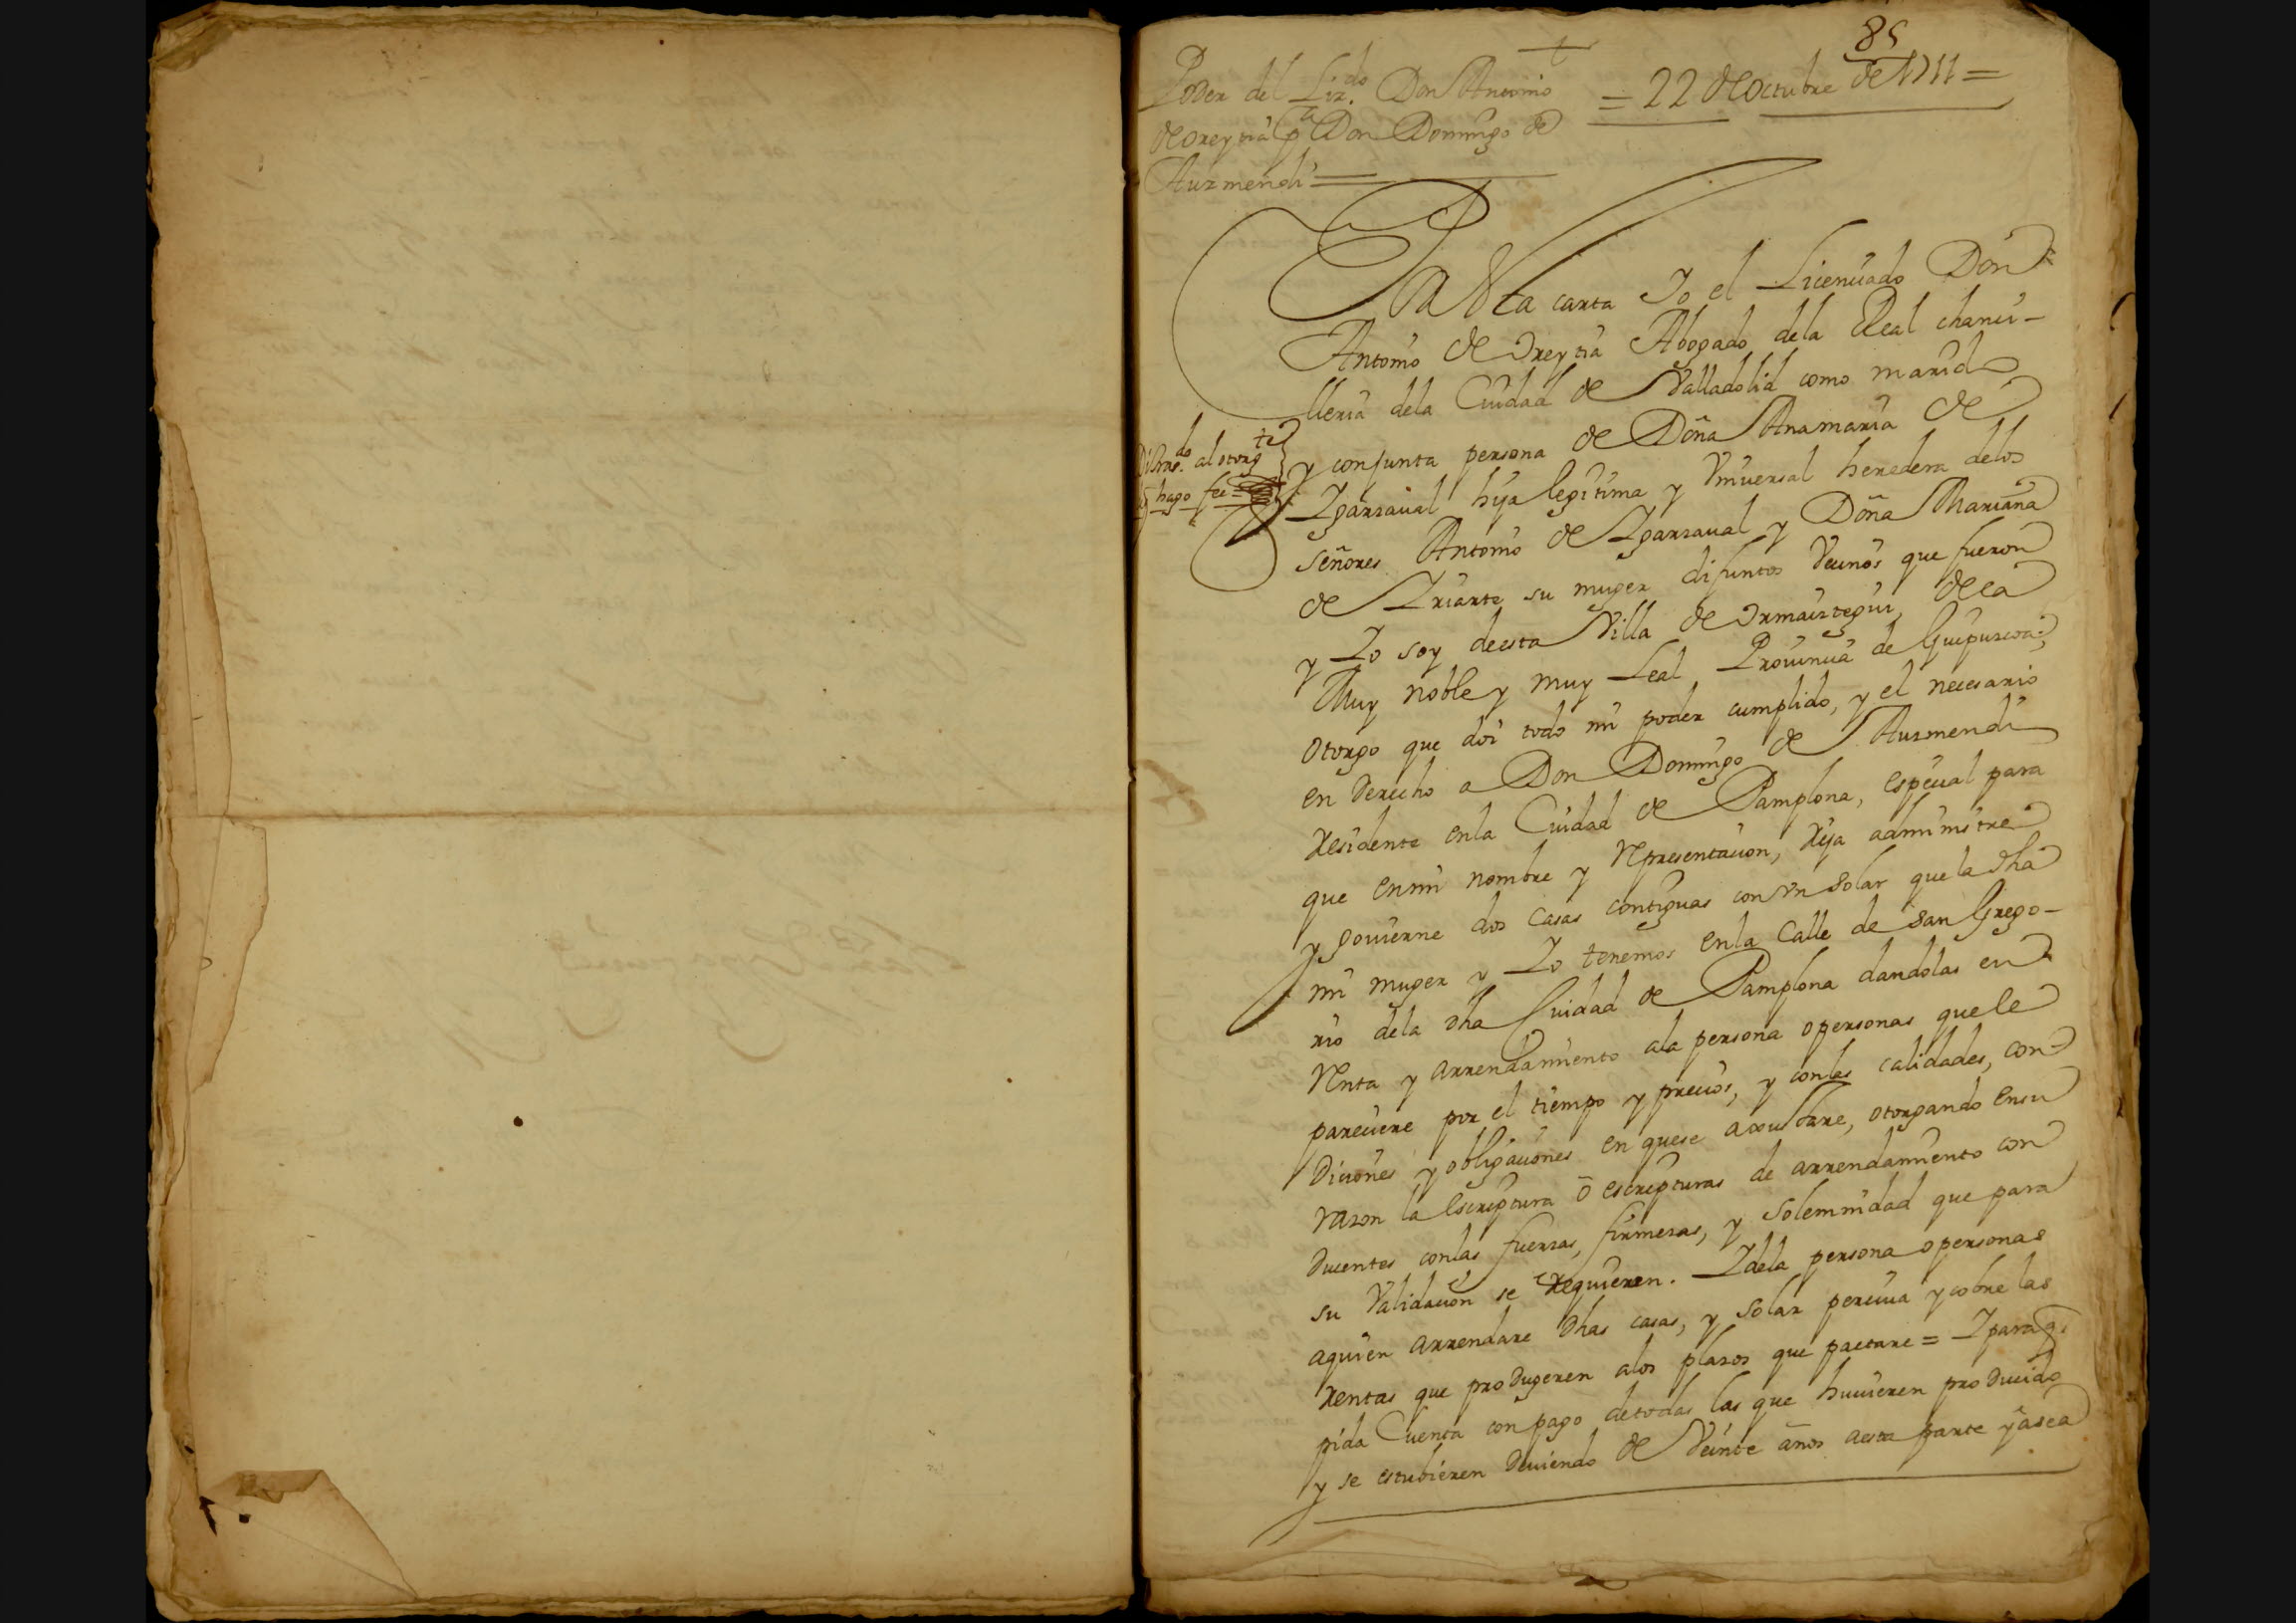 85
Poder del Liz.do Don Antonio
de oreytia p.a Don Domingo de
Auzmendi =
= 22 de octubre de 1711 =
Para esta carta Yo el Licenciado Don
Antonio de Oreytia Abogado dela Real chanci-
lleria dela Ciudad de Valladolid como marido
y conjunta persona de Doña Anamaria de
Ygarzaual hija legitima y Vniuersal heredera delos
señores Antonio de Ygarzaual y Doña Mariana
de Yriarte su muger difuntos Vecinos que fueron
y Yo soy deesta Villa de Ormaiztegui, dela
Muy noble y muy Leal Prouincia de Guipuzcoa,
otorgo que doi todo mi poder cumplido, y el necesario
en Derecho a Don Domingo de Auzmendi
Residente enla Ciudad de Pamplona, especial para
que enmi nombre y Representacion, Rija administre
y gouierne dos casas contiguas con vn solar que la dha
mi muger y Yo tenemos enla Calle de san Grego-
rio dela dha Ciudad de Pamplona dandolas en
Renta y arrendamiento ala persona opersonas quele
pareciere por el tiempo y precios, y conlas calidades, con-
Diciones y obligaciones en quese axustare, otorgando ensu
razon la escriptura ô escripturas de arrendamiento con
Ducentes conlas fuerzas, firmezas, y solemnidad que para
su Validacion se Requieren. Ydela persona opersonas
aquien arrendare dhas casas, y solar perciua ycobre las
Rentas que produgeren alos plazos que pactare = Ypara q.
pida Cuenta con pago detodas las que huuieren producido
y se estubieren Deuiendo de Veinte años aesta parte yasea
Di Tras.do al otorg.te
y hago fee =